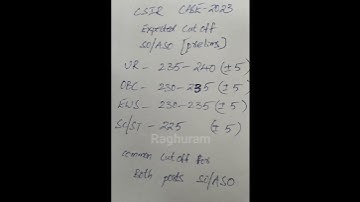 CSIR CASE-2023
Expected Cut off
SO/ASO [prelims]
UR - 235-240 (±5)
OBC - 230-235 (±5)
EWS - 230-235 (±5)
SC/ST - 225 (±5)
Raghuram
common cut off for
both posts SO/ASO